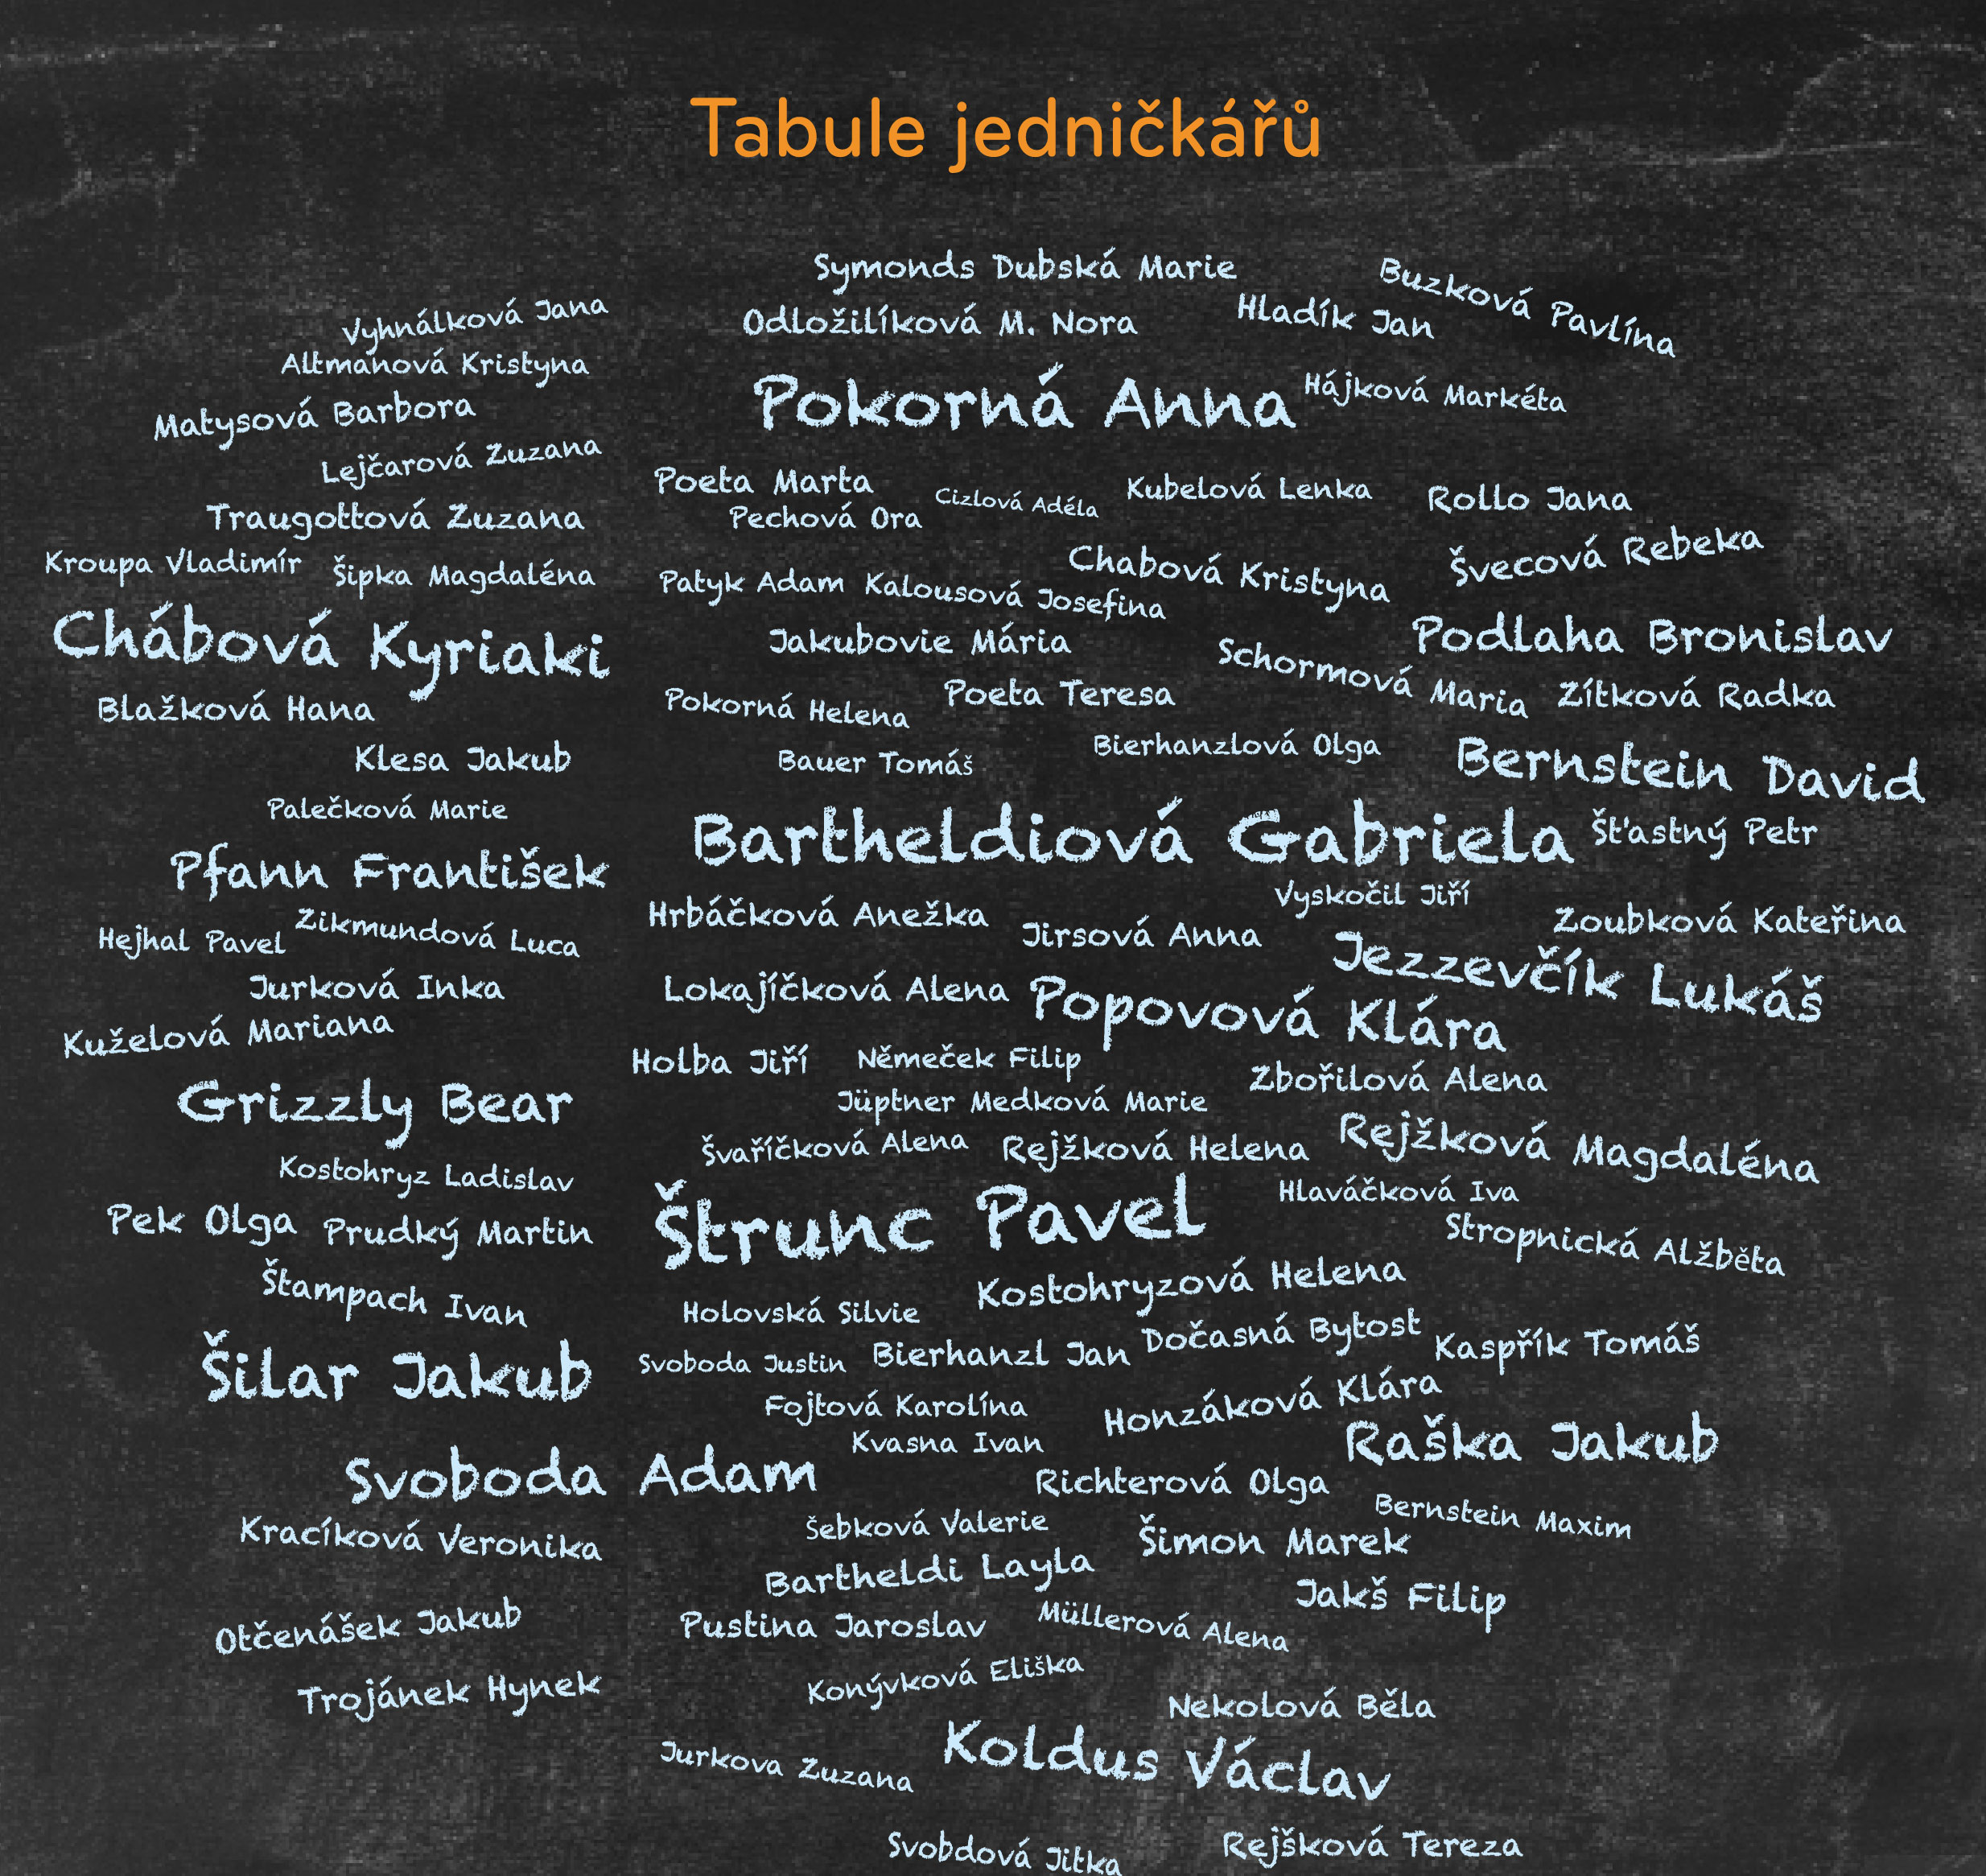 Tabule jedničkářů
Symonds Dubská Marie
Buzková Pavlína
Vyhnálková Jana
Odložilíková M. Nora
Hladík Jan
Altmanová Kristyna
Pokorná Anna
Hájková Markéta
Matysová Barbora
Lejčarová Zuzana
Poeta Marta
Cizlová Adéla
Kubelová Lenka
Rollo Jana
Traugottová Zuzana
Pechová Ora
Kroupa Vladimír
Šipka Magdaléna
Chabová Kristyna
Švecová Rebeka
Patyk Adam
Kalousová Josefina
Chábová Kyriaki
Jakubovie Mária
Schormová Maria
Podlaha Bronislav
Blažková Hana
Pokorná Helena
Poeta Teresa
Zítková Radka
Klesa Jakub
Bauer Tomáš
Bierhanzlová Olga
Bernstein David
Palečková Marie
Bartheldiová Gabriela
Šťastný Petr
Pfann František
Vyskočil Jiří
Hrbáčková Anežka
Jirsová Anna
Zoubková Kateřina
Hejhal Pavel
Zikmundová Luca
Jezzevčík Lukáš
Jurková Inka
Lokajíčková Alena
Popovová Klára
Kuželová Mariana
Holba Jiří
Němeček Filip
Zbořilová Alena
Grizzly Bear
Jüptner Medková Marie
Švaříčková Alena
Rejžková Helena
Rejžková Magdaléna
Kostohryz Ladislav
Hlaváčková Iva
Pek Olga
Prudký Martin
Štrunc Pavel
Stropnická Alžběta
Štampach Ivan
Holovská Silvie
Kostohryzová Helena
Šilar Jakub
Svoboda Justin
Bierhanzl Jan
Dočasná Bytost
Kaspřík Tomáš
Fojtová Karolína
Honzáková Klára
Kvasna Ivan
Raška Jakub
Svoboda Adam
Richterová Olga
Bernstein Maxim
Kracíková Veronika
Šebková Valerie
Šimon Marek
Bartheldi Layla
Jakš Filip
Otčenášek Jakub
Pustina Jaroslav
Müllerová Alena
Trojánek Hynek
Konývková Eliška
Nekolová Běla
Jurkova Zuzana
Koldus Václav
Svobdová Jitka
Rejšková Tereza